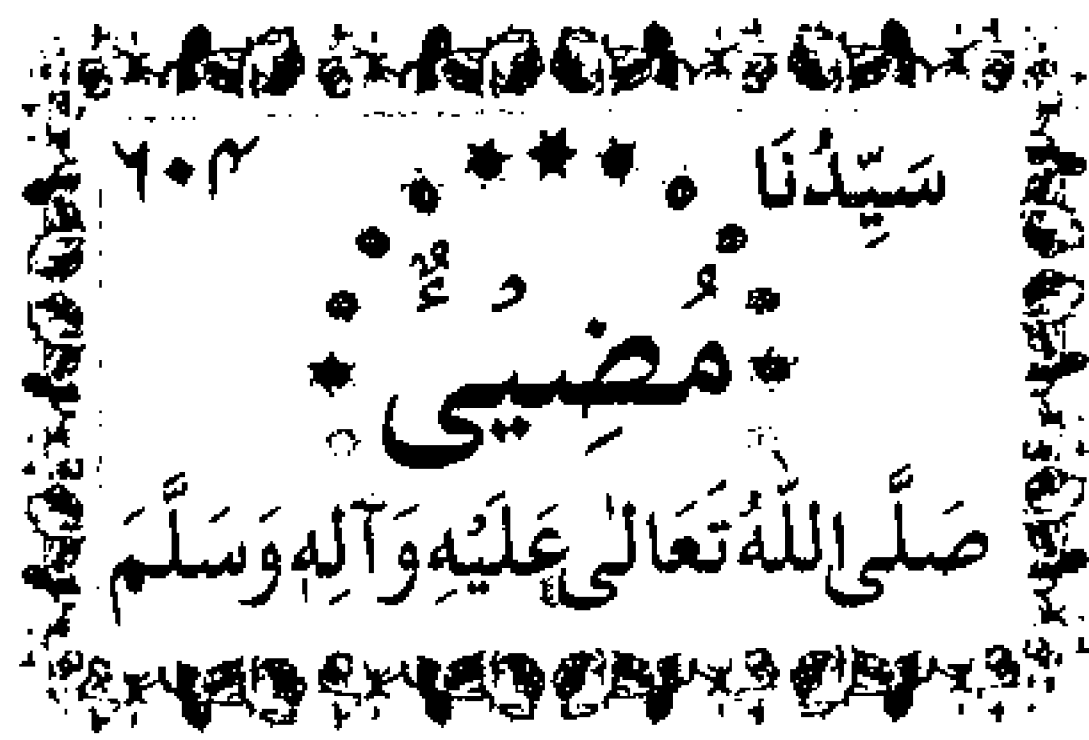 سَيِّدُنَا ۶۰۳
مُضِيْیءٌ
صَلَّى اللّٰهُ تَعَالٰى عَلَيْهِ وَآلِهٖ وَسَلَّمَ